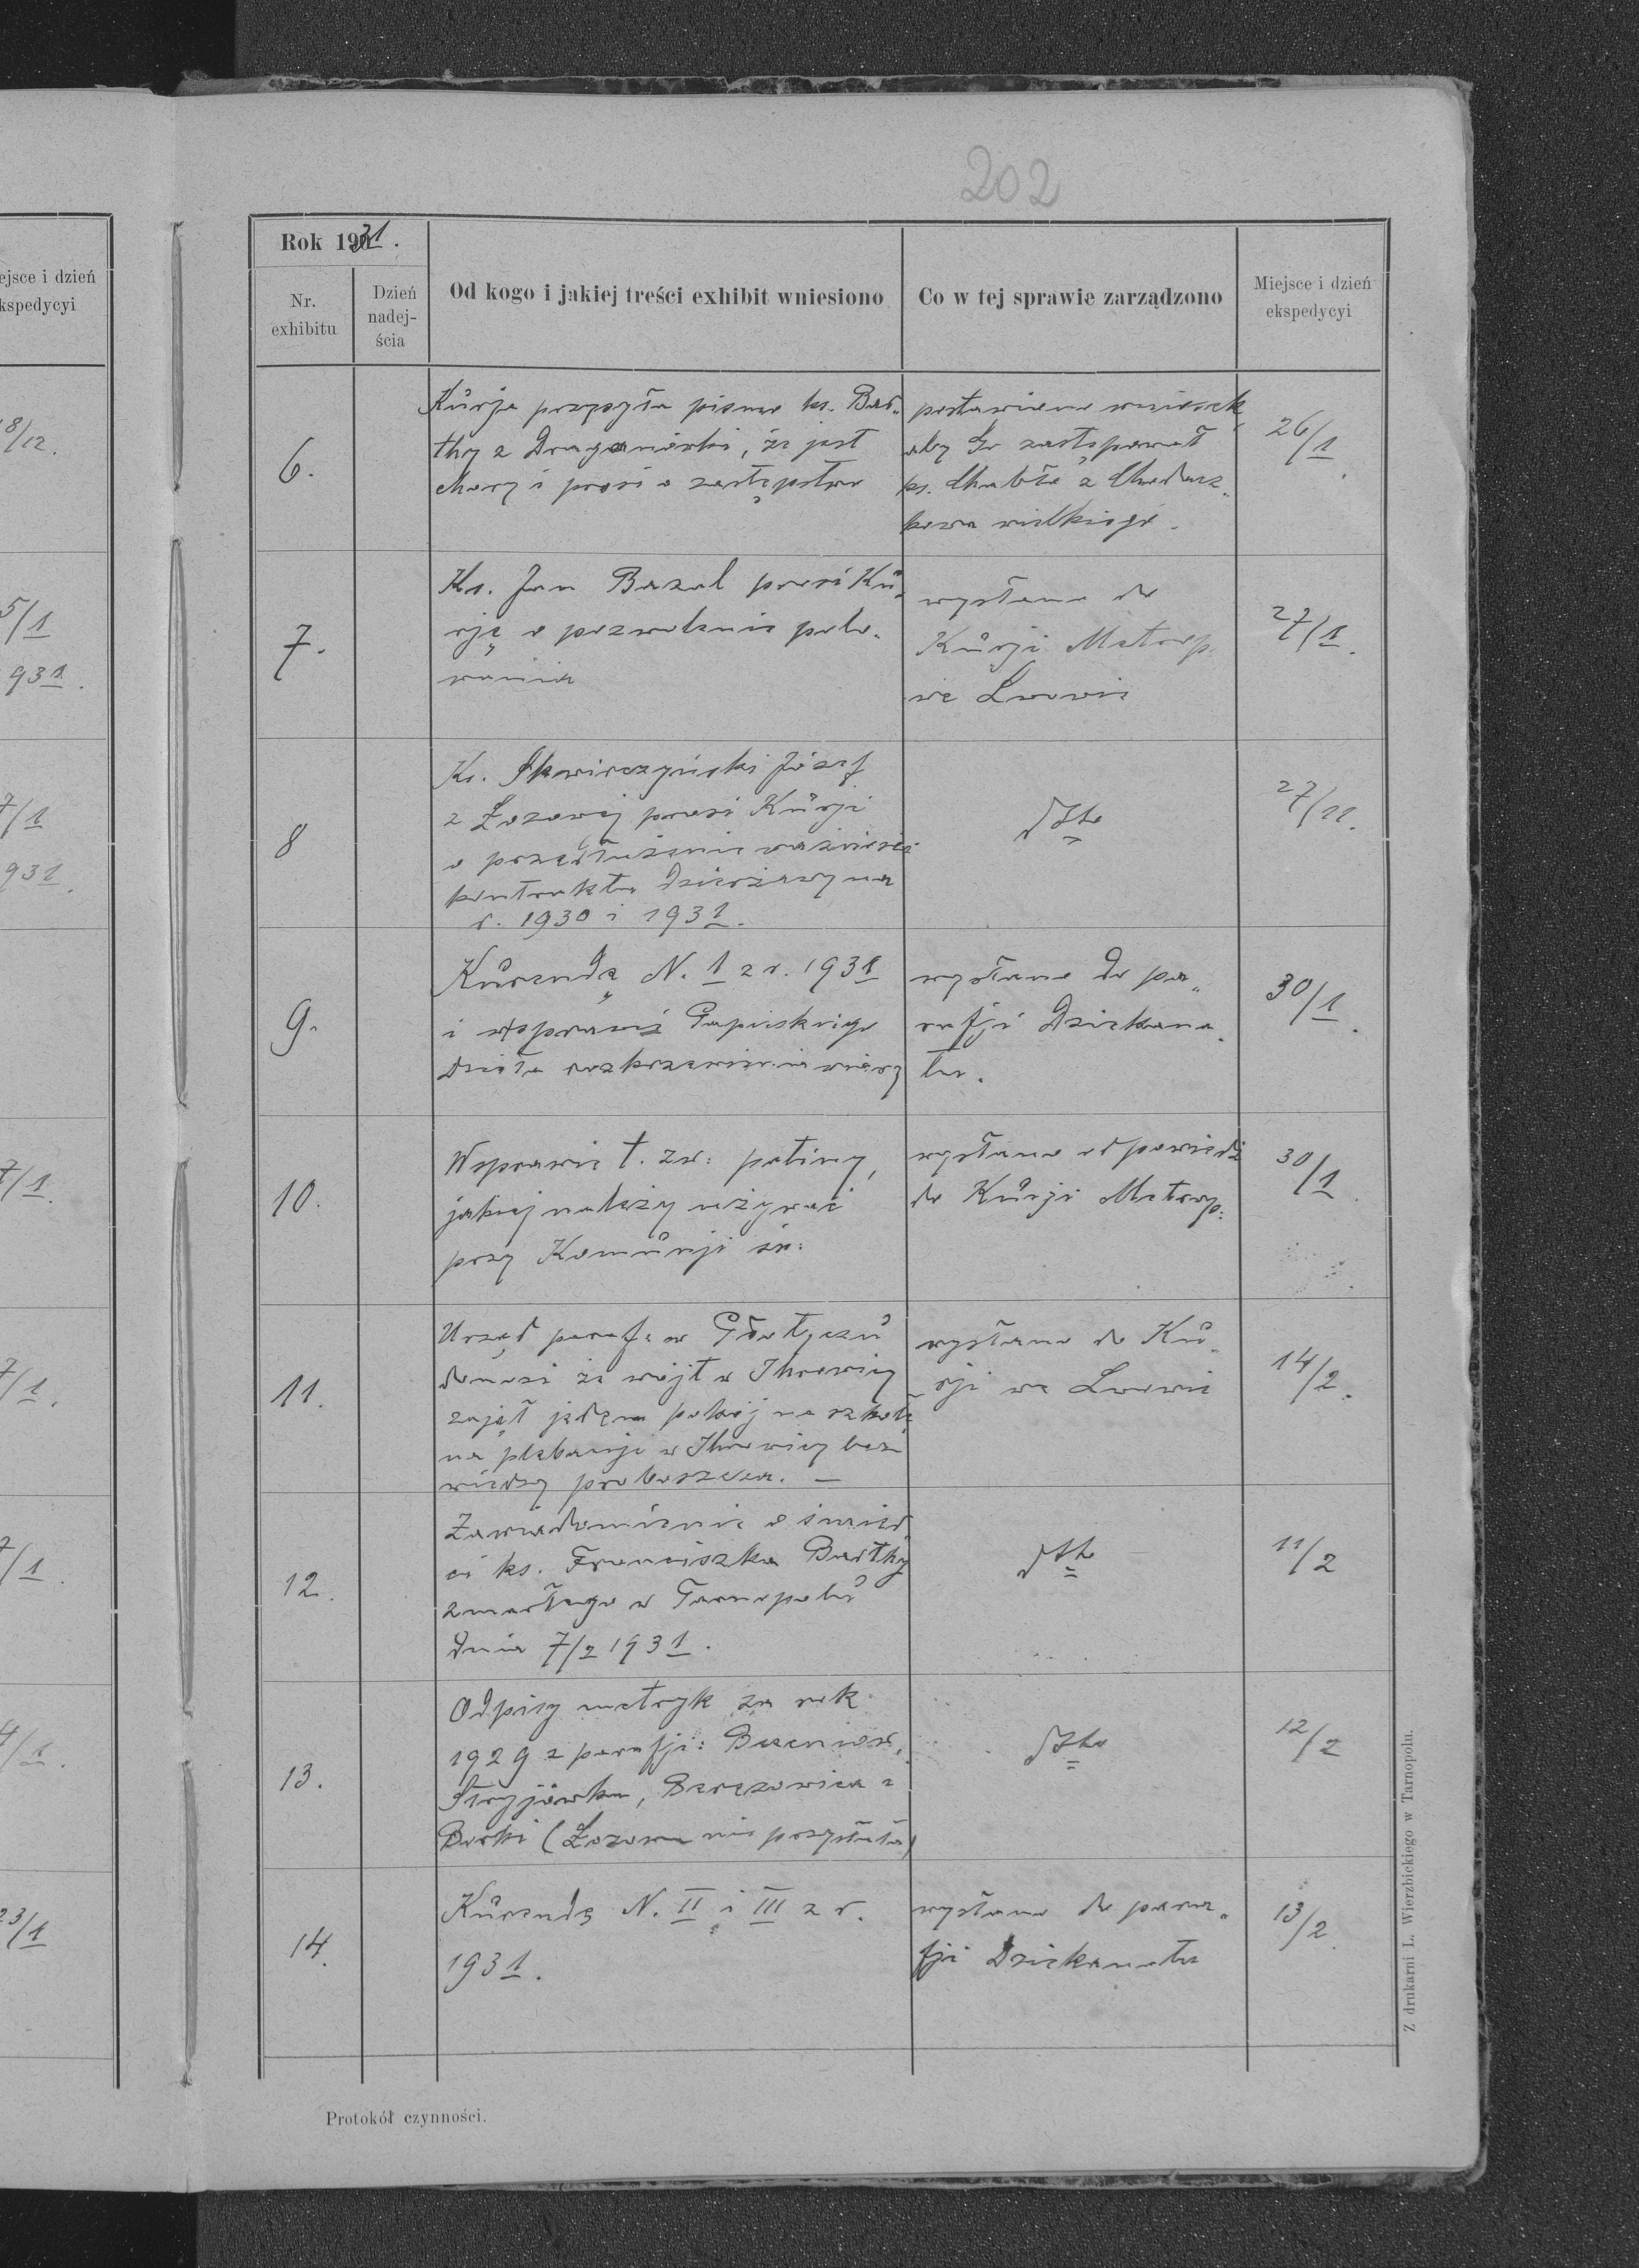 202
ejsce i dzień
kspedycyi
18/12.
5/1
931.
7/1
931.
7/1
7/1.
7/1.
4/1.
23/1
Rok 1931.
Nr.
exhibitu
Dzień
nadej-
ścia
Od kogo i jakiej treści exhibit wniesiono
Co w tej sprawie zarządzono
Miejsce i dzień
ekspedycyi
6.
Kurja przysyła pismo ks. Bar„
thy z Draganówki, że jest
chory i prosi o zastępstwo
postawiono wniosek,
aby Go zastępował
ks. z Chodacz„
kowa wielkiego.
26/1.
7.
Ks. Jan Bazal prosi Ku„
rję o pozwolenie polo„
wania
wysłano do
Kurji Metrop.
we Lwowie
27/1.
8
Ks. Skwirczyński Józef
z Łozowej prosi Kurji
o przedłużenie ważności
kontraktu dzierżawy na
r. 1930 i 1931.
dtto
27/11.
9.
Kurendę N. 1 z r. 1931
i wsprawie Papieskiego
Dzieła rozkrzewienia wiary
wysłano do pa„
rafji Dziekana„
tu.
30/1.
10.
Wsprawie t. zw: patiny,
jakiej należy używać
przy Komunji św:
wysłano odpowiedź
do Kurji Metrop:
30/1.
11.
Urząd paraf: w Płotyczu
donosi że wójt w Ihrowicy
zajął jeden pokój na szkołę
na plebanji w Ihrowicy bez
wiedzy proboszcza. —
wysłano do Ku„
rji we Lwowie
14/2.
12.
Zawiadomienie o śmier„
ci ks. Franciszka Barthy
zmarłego w Tarnopolu
dnia 7/2 1931.
dtto
11/2
13.
Odpisy metryk za rok
1929 z parafji: Baworów,
Stryjówka, Berezowica i
Borki (Łozowa nie przysłała)
dtto
12/2
14.
Kurendę N. II i III z r.
1931.
wysłano do para„
fji Dziekanatu
13/2.
Protokół czynności.
Z drukarni L. Wierzbickiego w Tarnopolu.